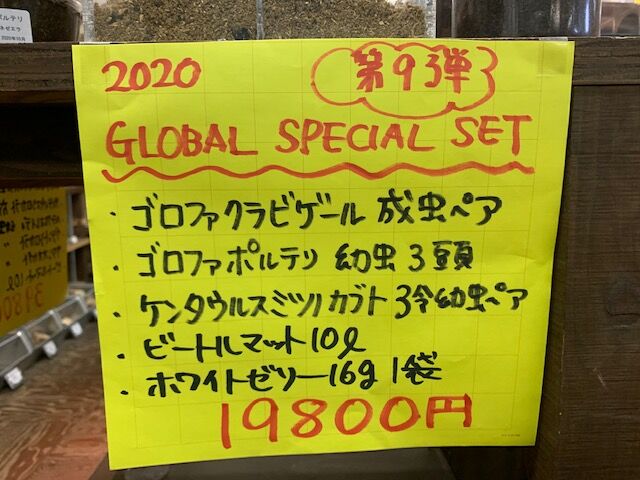 ポルテリ
ネゼエラ
2020年10月
2020
第93弾
GLOBAL SPECIAL SET
・ゴロファクラビゲール 成虫ペア
・ゴロファポルテリ 幼虫3頭
・ケンタウルスミツノカブト 3令幼虫ペア
・ビートルマット10ℓ
・ホワイトゼリー16g 1袋
19800円